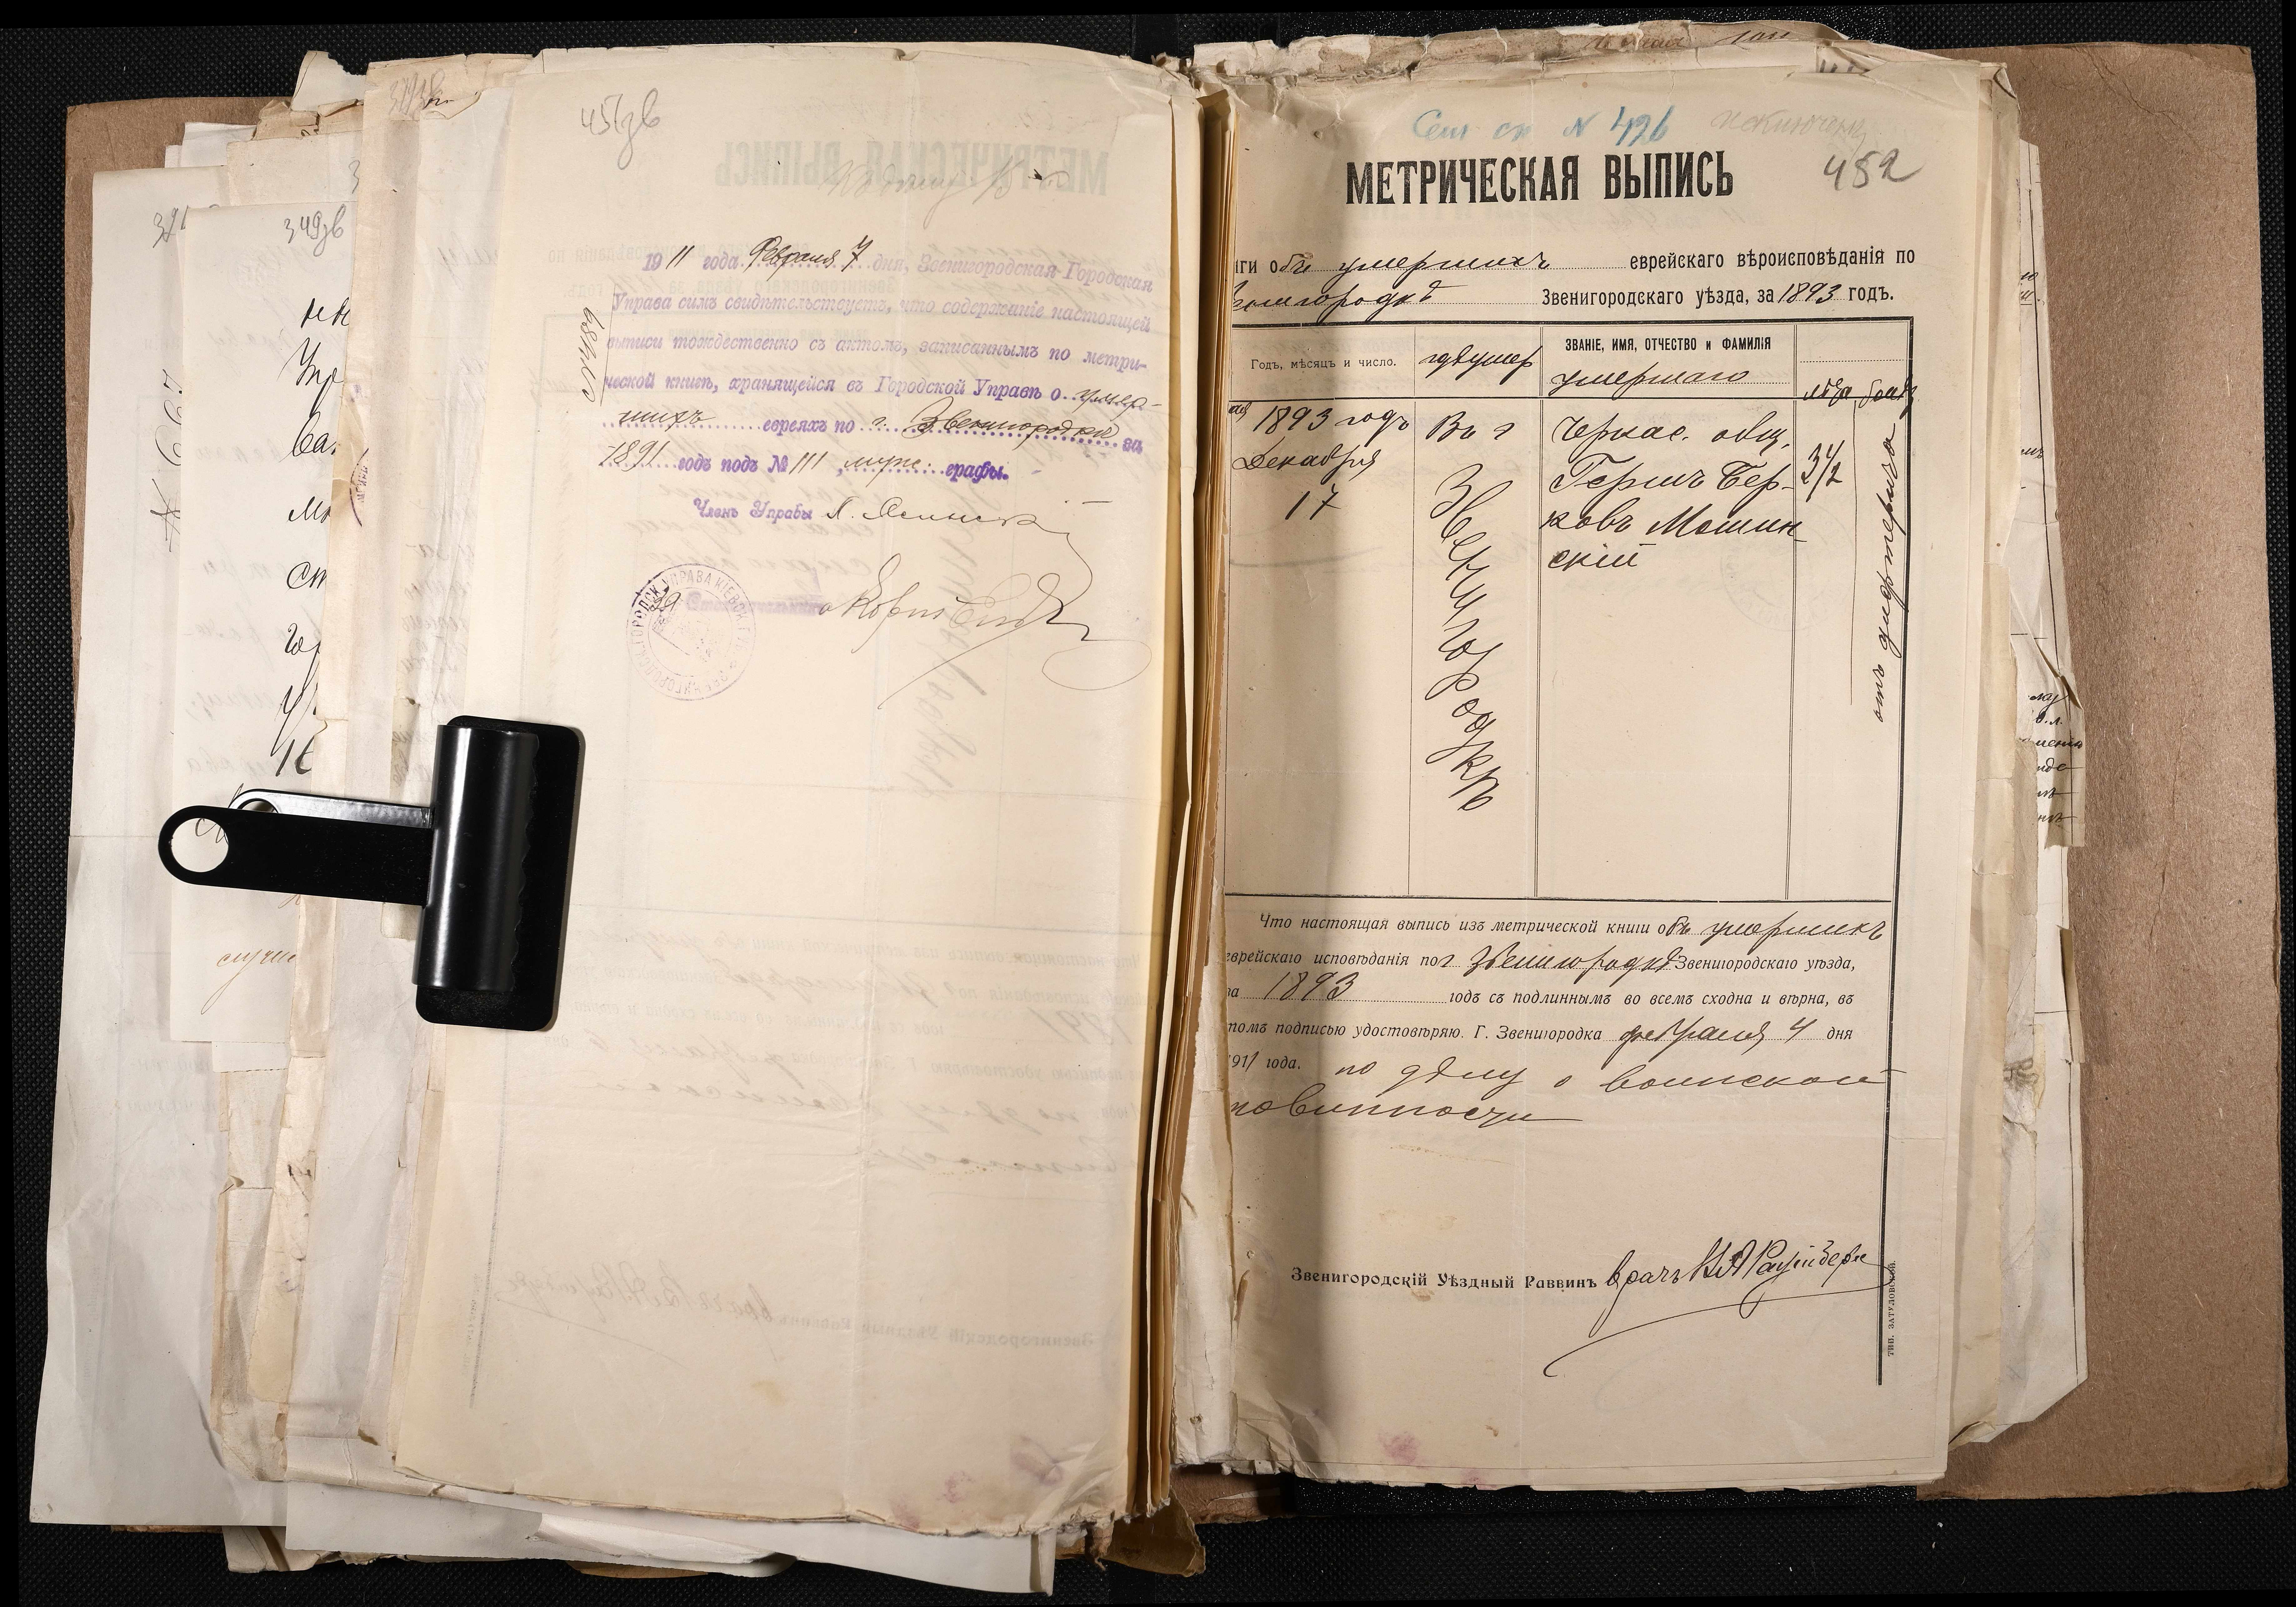 451зв
1911 года Февраля 7 дня, Звенигородская Городская
Управа симъ свидѣтельствуетъ, что содержаніе настоящей
выписи тождественно съ актомъ, записаннымъ по метри-
ческой книгѣ, хранящейся въ Городской Управѣ о умер-
шихъ евреяхъ по г. Звенигородкѣ за
1891 годъ подъ № 111 , муж. графы.
Членъ Управы
349зв
Сем сп N 426 исключенъ
452
МЕТРИЧЕСКАЯ ВЫПИСЬ
иги объ умершихъ еврейскаго вѣроисповѣданія по
Звенигородскаго уѣзда, за 1893 годъ.
Годъ, мѣсяцъ и число.
гдѣ умер
ЗВАНІЕ, ИМЯ, ОТЧЕСТВО и ФАМИЛІЯ
умершаго
лѣта
1893 годъ
Декабря
17
Въ г
Звенигородкѣ
Черкас. общ.
Гершъ Бер-
ковъ Мошин-
скій
3 1/2
отъ дифтерита
Что настоящая выпись изъ метрической книги объ умершихъ
еврейскаго исповѣданія по г Звенигородкѣ Звенигородскаго уѣзда,
за 1893 годъ съ подлиннымъ во всемъ сходна и вѣрна, въ
томъ подписью удостовѣряю. Г. Звенигородка февраля 4 дня
1911 года. по дѣлу о воинской
повинности
Звенигородскій Уѣздный Раввинъ врачъ
ТИП. ЗАТУЛОВСКОЙ